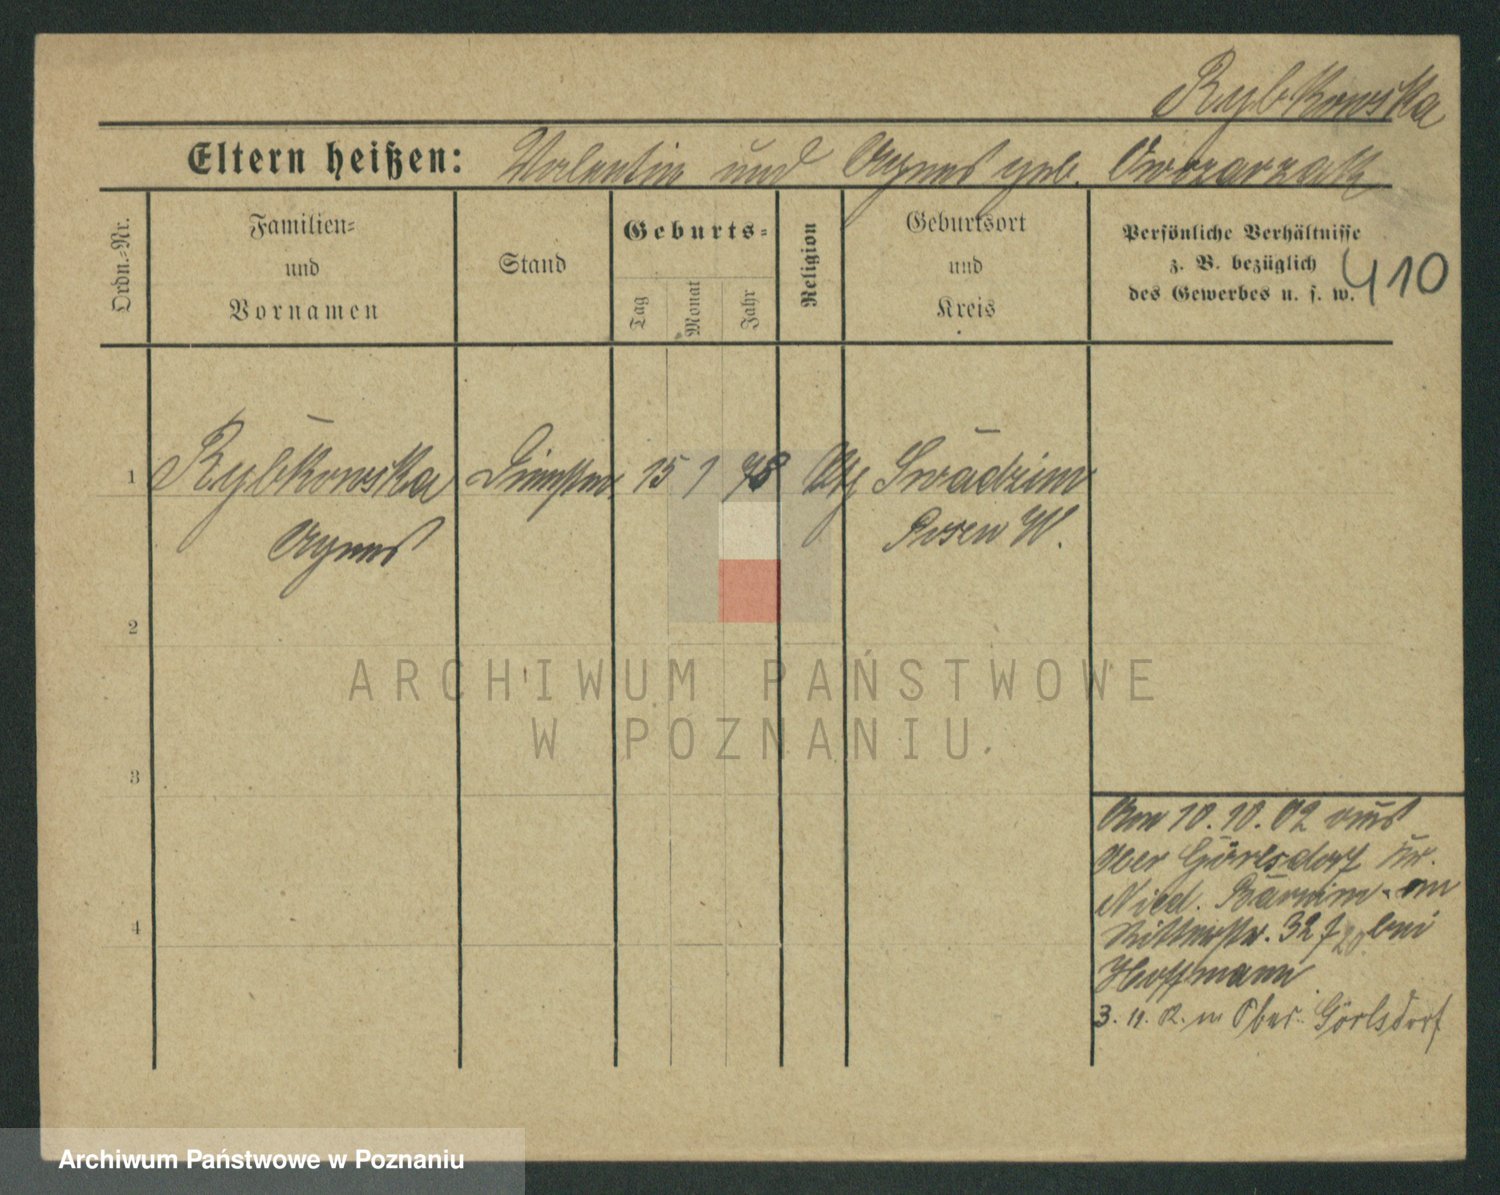 Rybkowska
Eltern heißen: Valentin und Agnes geb.
Ordn.-Nr.
Familien-
und
Vornamen
Stand
Geburts-
Tag
Monat
Jahr
Religion
Geburtsort
und
Kreis
Persönliche Verhältnisse
z. B. bezüglich
des Gewerbes u. s. w.
410
1 Rybkowska 15 1 78 Swadzim
Agnes Posen W.
2
3
4
Am 10. 10. 02 aus
Ober Görlsdorf Kr.
Nied. Barnim
Ritterstr. 32 bei
Hoffmann
3. 11. 02. n Ober-Görlsdorf
ARCHIWUM PAŃSTWOWE
W POZNANIU
Archiwum Państwowe w Poznaniu